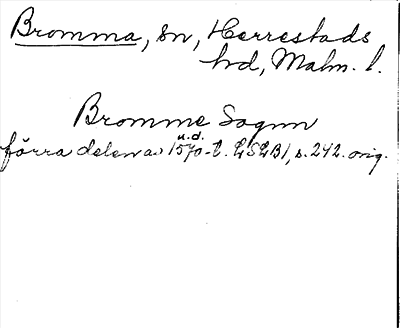 Bromma, sn, Herrestads
hd, Malm. l.
Bromme Sognn
u.d.
förra delen av 1570-t. LSLB1, s. 242. orig.